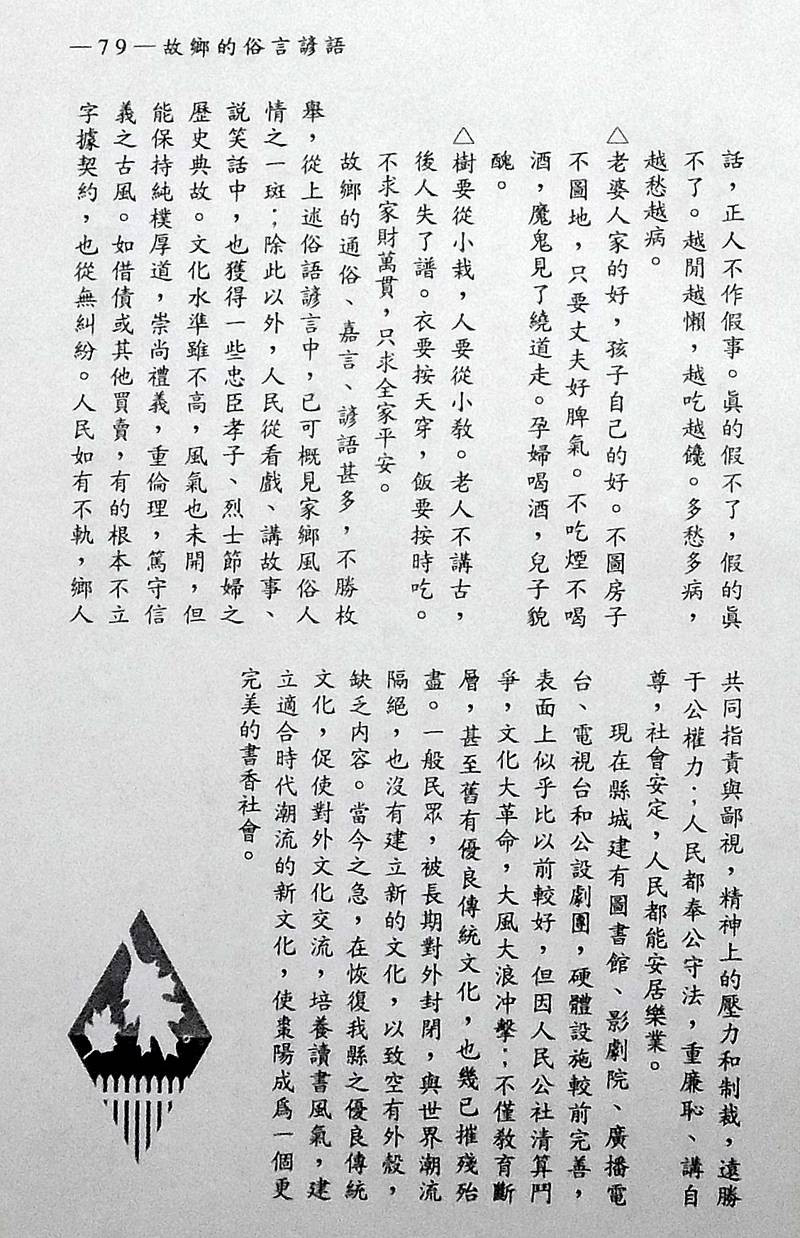 —79—故鄉的俗言諺語
話，正人不作假事。眞的假不了，假的眞
不了。越閒越懶，越吃越饞。多愁多病，
越愁越病。
△老婆人家的好，孩子自己的好。不圖房子
不圖地，只要丈夫好脾氣。不吃煙不喝
酒，魔鬼見了繞道走。孕婦喝酒，兒子貌
醜。
△樹要從小栽，人要從小教。老人不講古，
後人失了譜。衣要按天穿，飯要按時吃。
不求家財萬貫，只求全家平安。
故鄉的通俗、嘉言、諺語甚多，不勝枚
舉，從上述俗語諺言中，已可概見家鄉風俗人
情之一斑；除此以外，人民從看戲、講故事、
説笑話中，也獲得一些忠臣孝子、烈士節婦之
歷史典故。文化水準雖不高，風氣也未開，但
能保持純樸厚道，崇尚禮義，重倫理，篤守信
義之古風。如借債或其他買賣，有的根本不立
字據契約，也從無糾紛。人民如有不軌，鄉人
共同指責與鄙視，精神上的壓力和制裁，遠勝
于公權力；人民都奉公守法，重廉恥、講自
尊，社會安定，人民都能安居樂業。
現在縣城建有圖書館、影劇院、廣播電
台、電視台和公設劇團，硬體設施較前完善，
表面上似乎比以前較好，但因人民公社清算鬥
爭，文化大革命，大風大浪冲擊；不僅教育斷
層，甚至舊有優良傳統文化，也幾已摧殘殆
盡。一般民眾，被長期對外封閉，與世界潮流
隔絕，也沒有建立新的文化，以致空有外殼，
缺乏内容。當今之急，在恢復我縣之優良傳統
文化，促使對外文化交流，培養讀書風氣，建
立適合時代潮流的新文化，使棗陽成爲一個更
完美的書香社會。